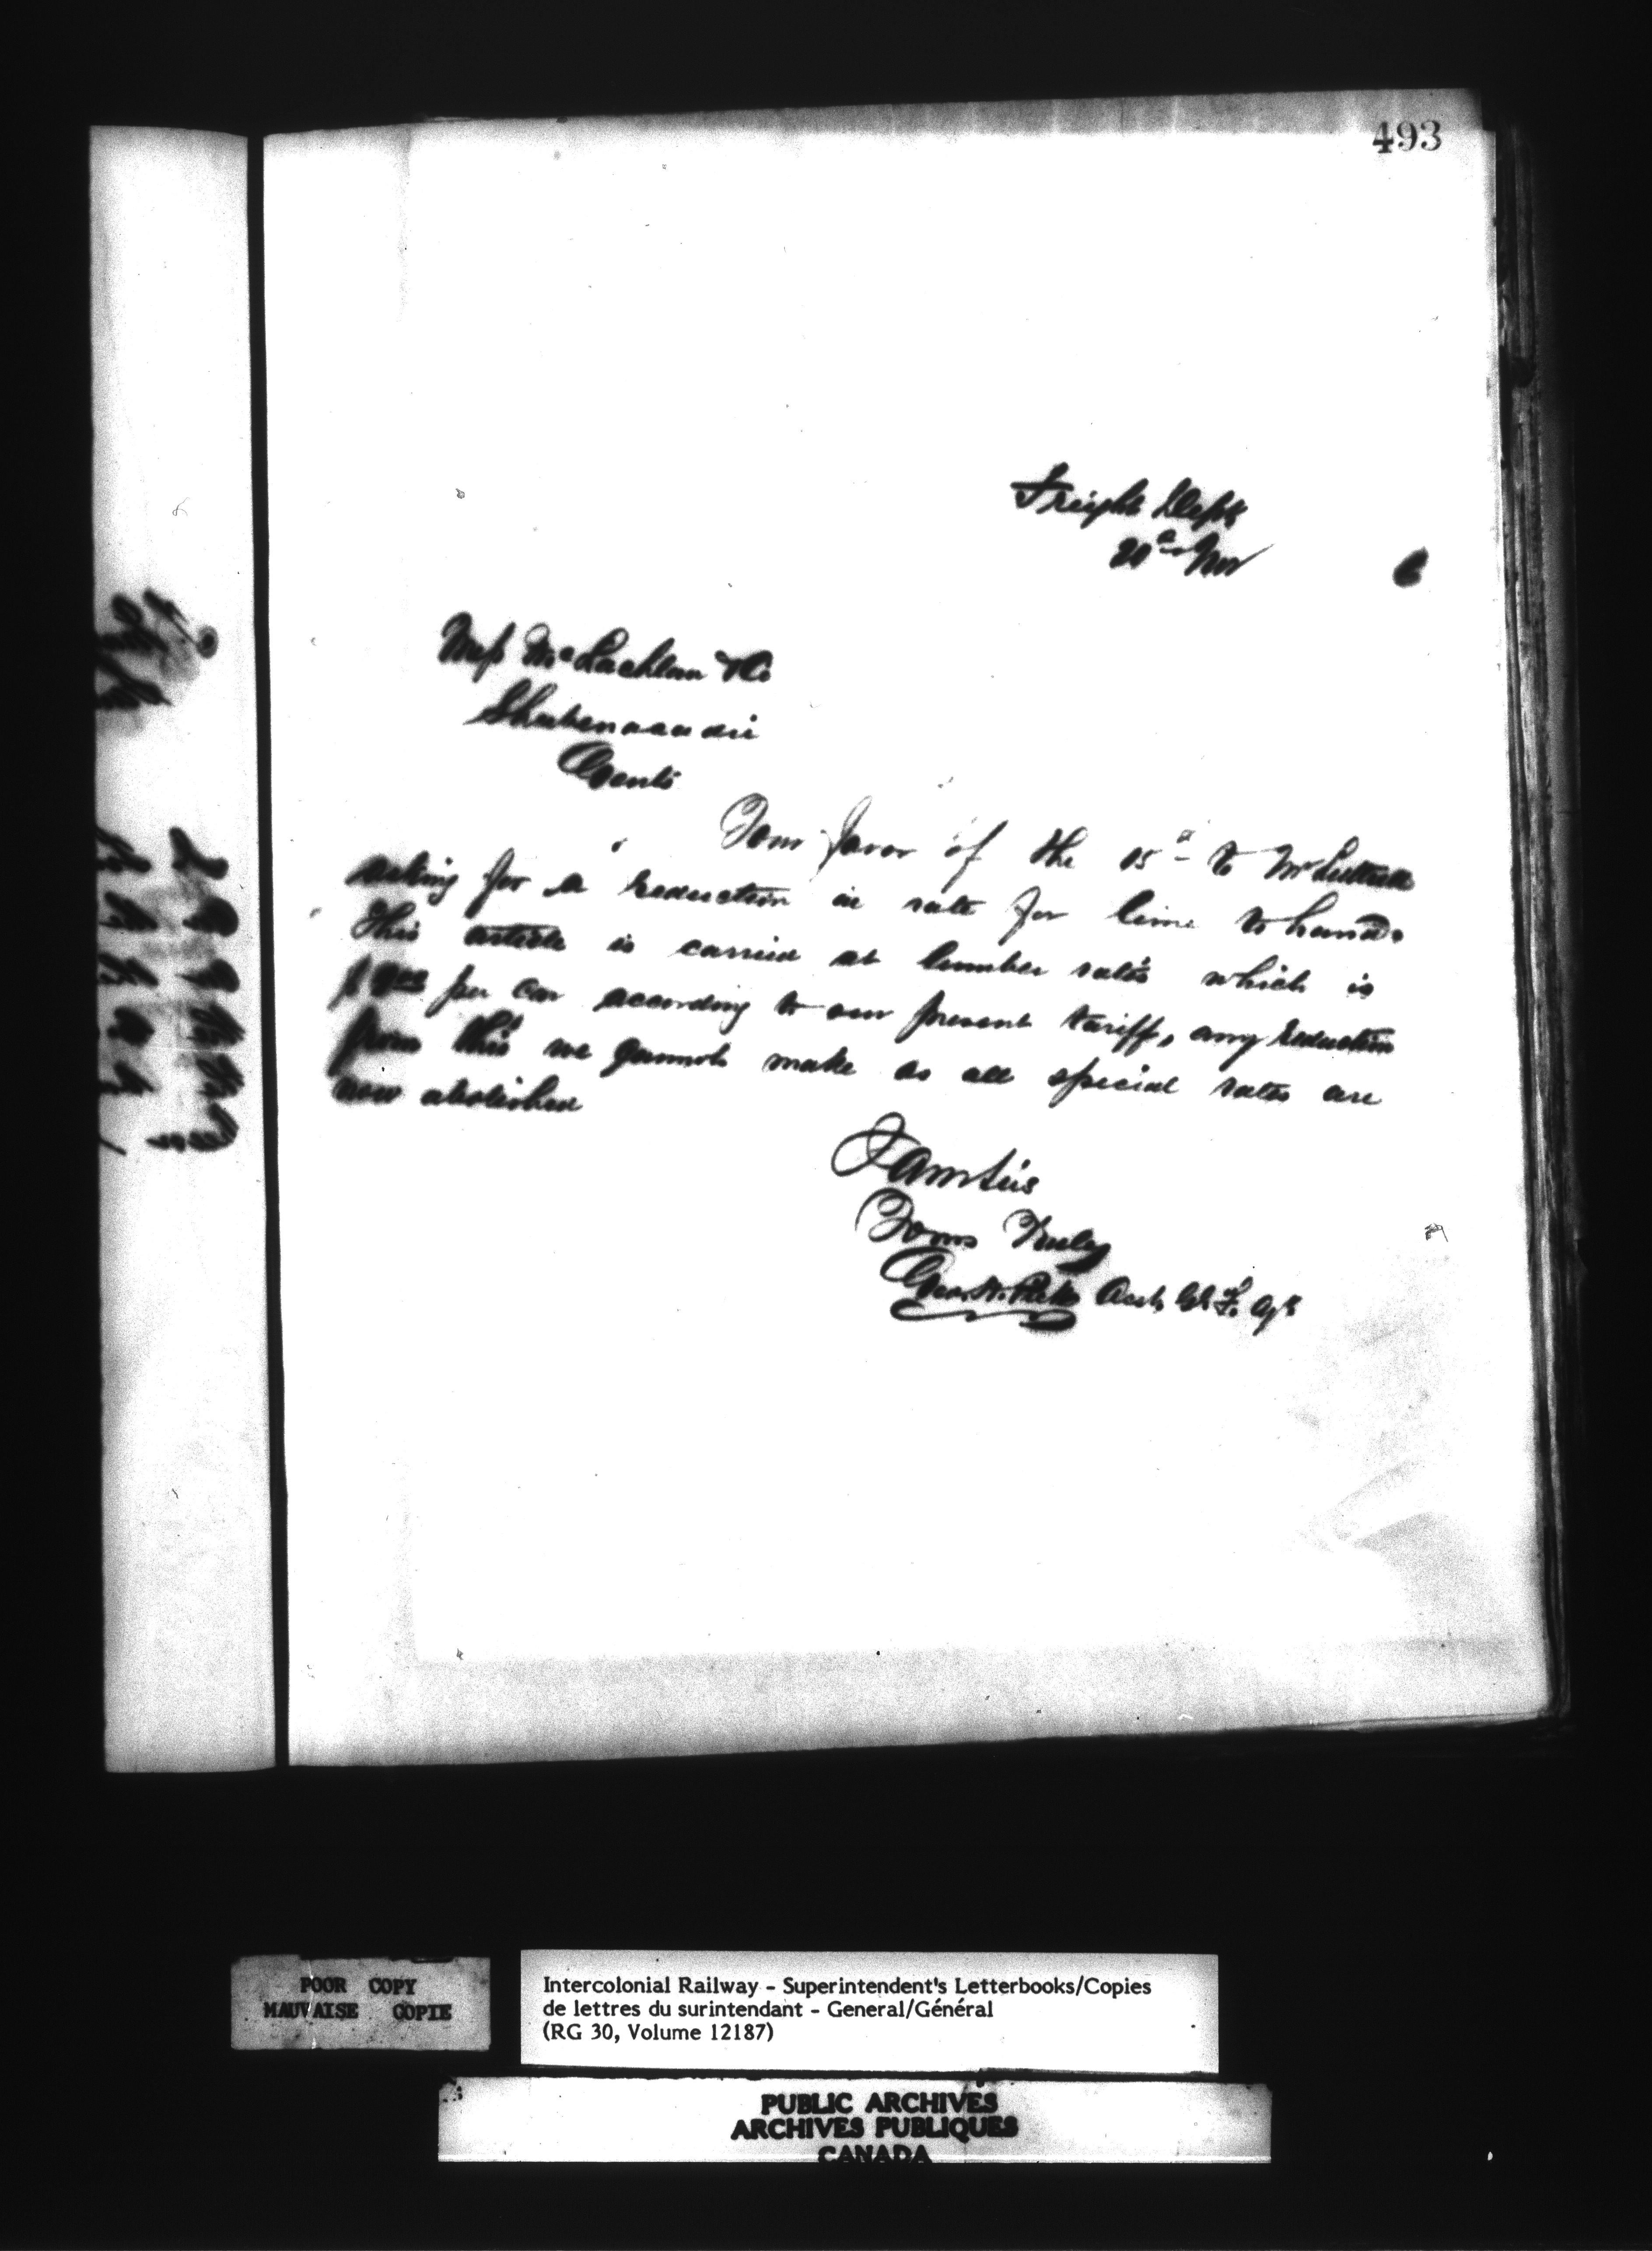 493
Freight Dept
20th Nov 6
Mess McLachlan & Co
Shubenacadie
Gents
Your favor of the 15th to Mr Luttrell
asking for a reduction in rate for lime to hand.
This article is carried at lumber rates which is
per car according to our present tariff, any reduction
from this we cannot make as all special rates are
now abolished
I am Sirs
Yours Truly
Geo. Asst Gl F. Agt
POOR COPY
MAUVAISE COPIE
Intercolonial Railway - Superintendent's Letterbooks/Copies
de lettres du surintendant - General/Général
(RG 30, Volume 12187)
PUBLIC ARCHIVES
ARCHIVES PUBLIQUES
CANADA